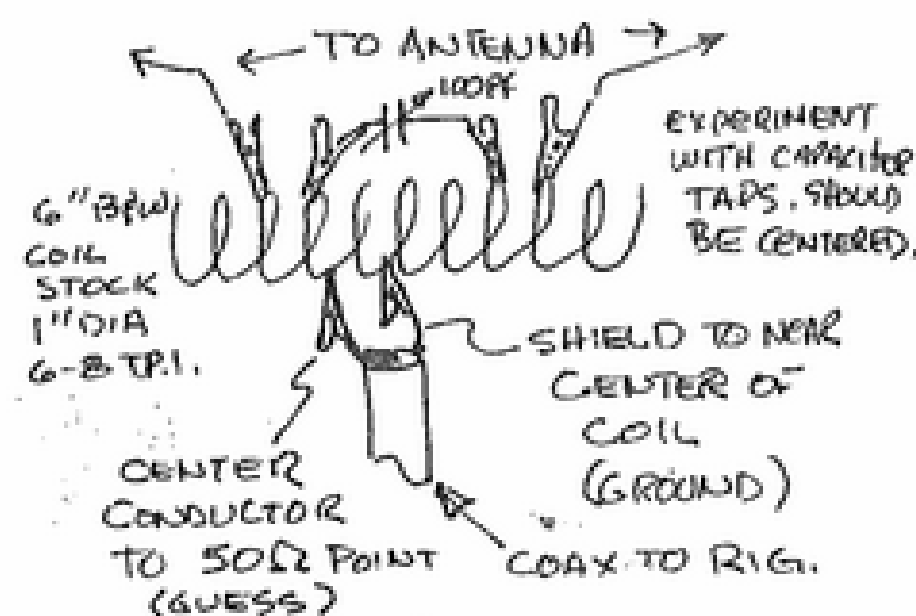 ← TO ANTENNA →
100PF
EXPERIMENT
WITH CAPACITOR
TAPS. SHOULD
BE CENTERED.
6" B&W
COIL
STOCK
1" DIA
6-8 T.P.I.
SHIELD TO NEAR
CENTER OF
COIL
(GROUND)
CENTER
CONDUCTOR
TO 50Ω POINT
(GUESS)
COAX TO RIG.